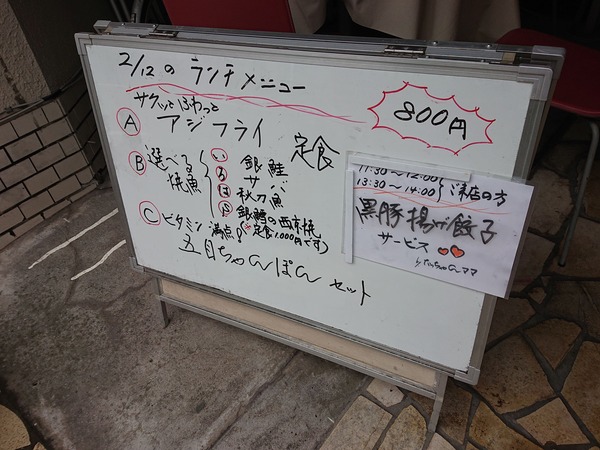 2/12の ランチメニュー
800円
サクッとふわっと
A アジフライ 定食
B 選べる焼魚
い 銀鮭
ろ サバ
は 秋刀魚
銀鱈の西京焼
(※定食1,000円です)
C ビタミン満点!
五目ちゃんぽんセット
11:30〜12:00
13:30〜14:00 ご来店の方
黒豚揚げ餃子
サービス
ママ